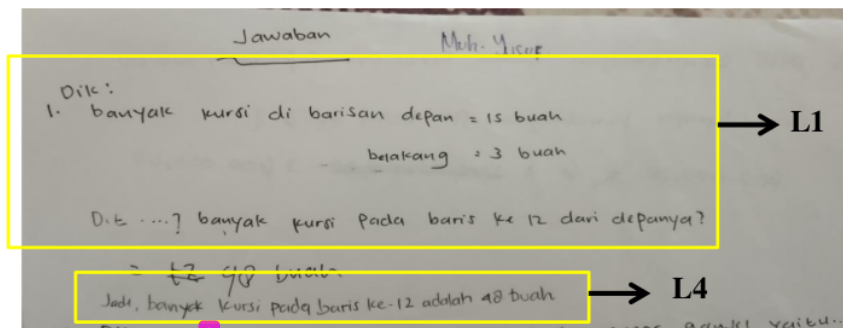 Jawaban
Muh. Yusuf
Dik:
1. banyak kursi di barisan depan = 15 buah
belakang = 3 buah
L1
Dit ....? banyak kursi pada baris ke 12 dari depanya?
= 48 buah
Jadi, banyak kursi pada baris ke-12 adalah 48 buah
L4
yaitu..